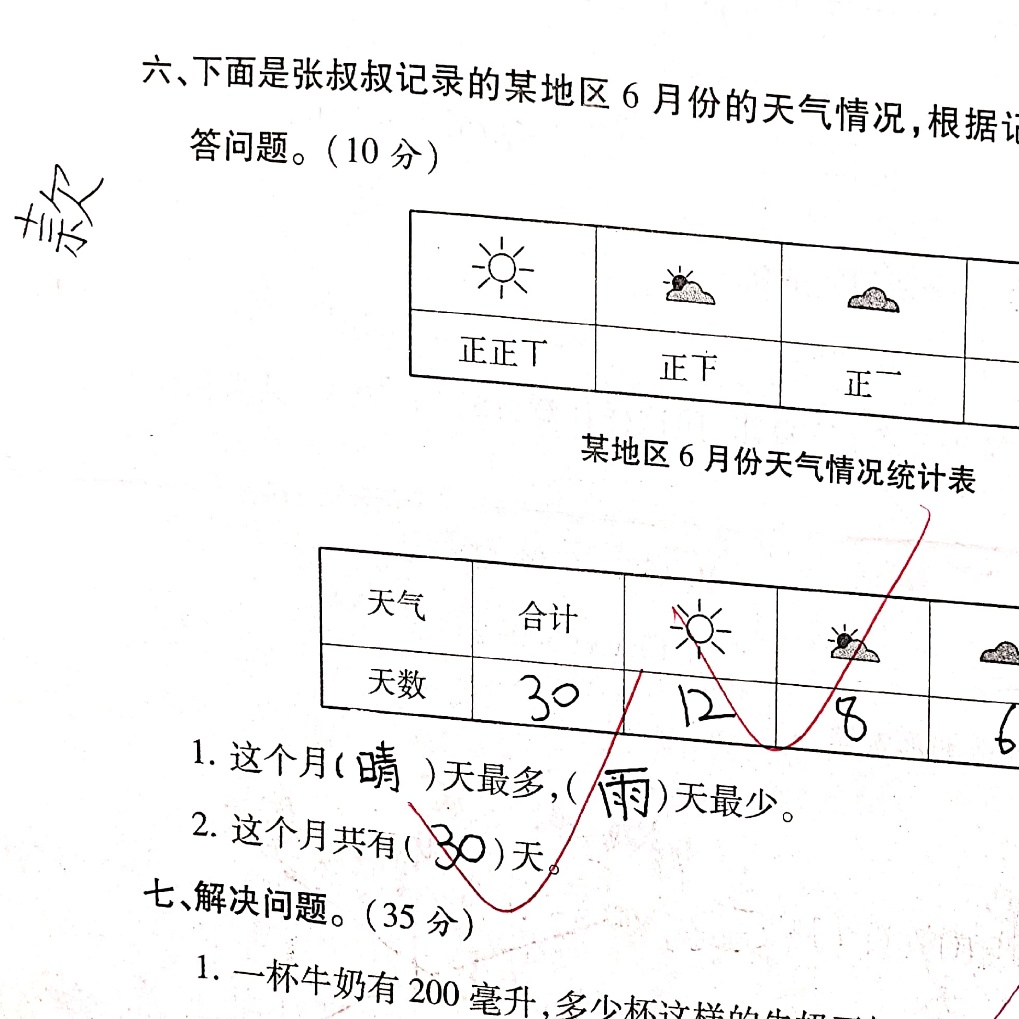 六、下面是张叔叔记录的某地区 6 月份的天气情况,根据记
答问题。(10 分)
款
正正丅 正下 正一
某地区 6 月份天气情况统计表
天气 合计
天数 30 12 8 6
1. 这个月(晴)天最多,(雨)天最少。
2. 这个月共有(30)天。
七、解决问题。(35 分)
1. 一杯牛奶有 200 毫升,多少杯这样的牛奶